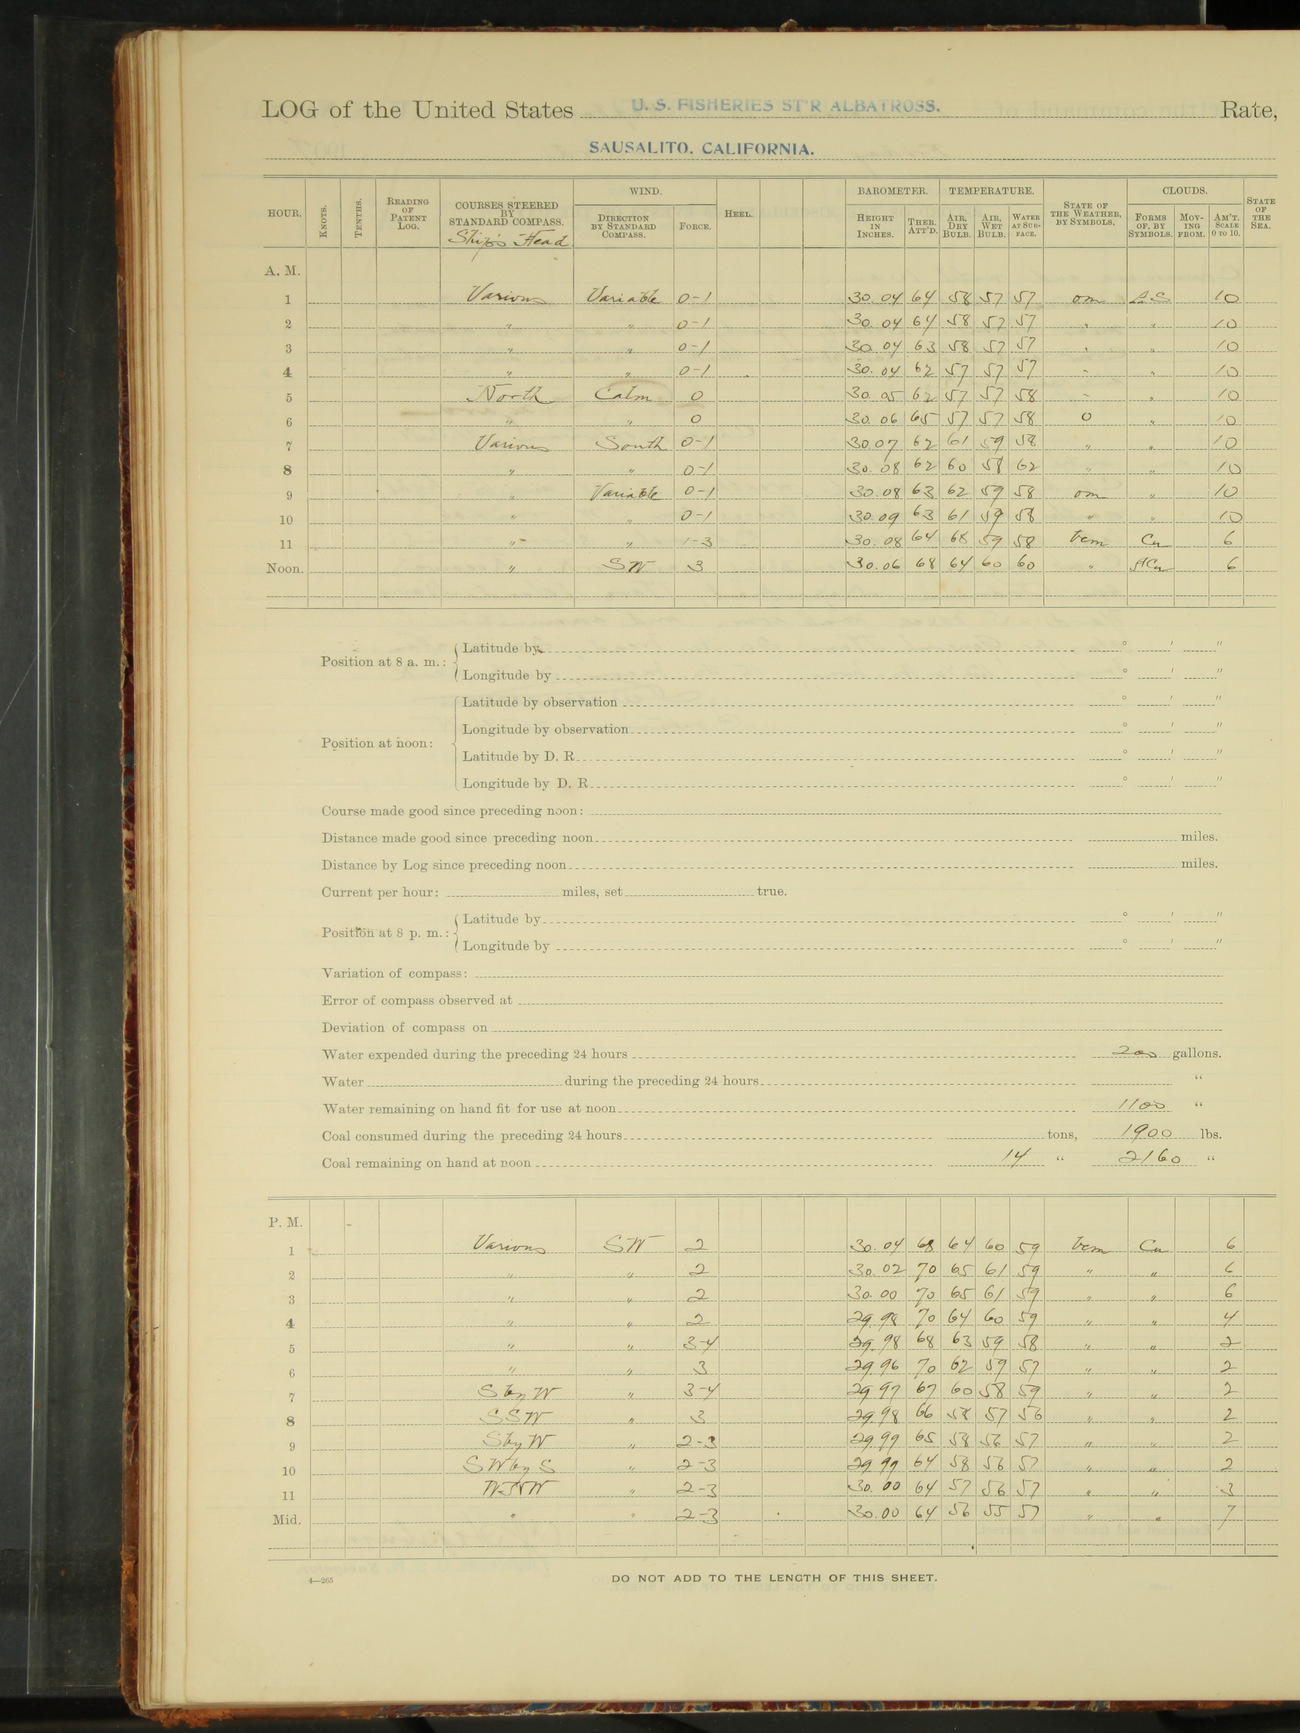 LOG of the United States U. S. FISHERIES ST'R ALBATROSS. Rate,
SAUSALITO, CALIFORNIA.
HOUR. KNOTS. TENTHS. READING OF PATENT LOG. COURSES STEERED BY STANDARD COMPASS. Ship's Head WIND. DIRECTION BY STANDARD COMPASS. FORCE. HEEL. BAROMETER. HEIGHT IN INCHES. THER. ATT'D. TEMPERATURE. AIR, DRY BULB. AIR, WET BULB. WATER AT SURFACE. STATE OF THE WEATHER, BY SYMBOLS. CLOUDS. FORMS OF, BY SYMBOLS. MOVING FROM. AM'T. SCALE 0 TO 10. STATE OF THE SEA.
A. M.
1 Various Variable 0-1 30.04 64 58 57 57 om 10
2 " " 0-1 30.04 64 58 57 57 " " 10
3 " " 0-1 30.04 63 58 57 57 " " 10
4 " " 0-1 30.04 62 57 57 57 " " 10
5 North Calm 0 30.05 62 57 57 58 " " 10
6 " " 0 30.06 65 57 57 58 O " 10
7 Various South 0-1 30.07 62 61 59 58 " " 10
8 " " 0-1 30.08 62 60 58 62 " " 10
9 " Variable 0-1 30.08 63 62 59 58 om " 10
10 " " 0-1 30.09 63 61 59 58 " " 10
11 " " 1-3 30.08 64 68 59 58 bcm Cu 6
Noon. " SW 3 30.06 68 64 60 60 " ACu 6
Position at 8 a. m.: Latitude by ° ' "
Longitude by ° ' "
Position at noon: Latitude by observation ° ' "
Longitude by observation ° ' "
Latitude by D. R. ° ' "
Longitude by D. R. ° ' "
Course made good since preceding noon:
Distance made good since preceding noon miles.
Distance by Log since preceding noon miles.
Current per hour: miles, set true.
Position at 8 p. m.: Latitude by ° ' "
Longitude by ° ' "
Variation of compass:
Error of compass observed at
Deviation of compass on
Water expended during the preceding 24 hours 200 gallons.
Water during the preceding 24 hours "
Water remaining on hand fit for use at noon 1100 "
Coal consumed during the preceding 24 hours tons, 1900 lbs.
Coal remaining on hand at noon 14 " 2160 "
P. M.
1 Various SW 2 30.04 68 64 60 59 bcm Cu 6
2 " " 2 30.02 70 65 61 59 " " 6
3 " " 2 30.00 70 65 61 59 " " 6
4 " " 2 29.98 70 64 60 59 " " 4
5 " " 3-4 29.98 68 63 59 58 " " 2
6 " " 3 29.96 70 62 59 57 " " 2
7 S by W " 3-4 29.97 67 60 58 59 " " 2
8 SSW " 3 29.98 66 58 57 56 " " 2
9 S by W " 2-3 29.99 65 58 56 57 " " 2
10 SW by S " 2-3 29.99 64 58 56 57 " " 2
11 " 2-3 30.00 64 57 56 57 " " 3
Mid. " " 2-3 30.00 64 56 55 57 " " 7
4—265 DO NOT ADD TO THE LENGTH OF THIS SHEET.